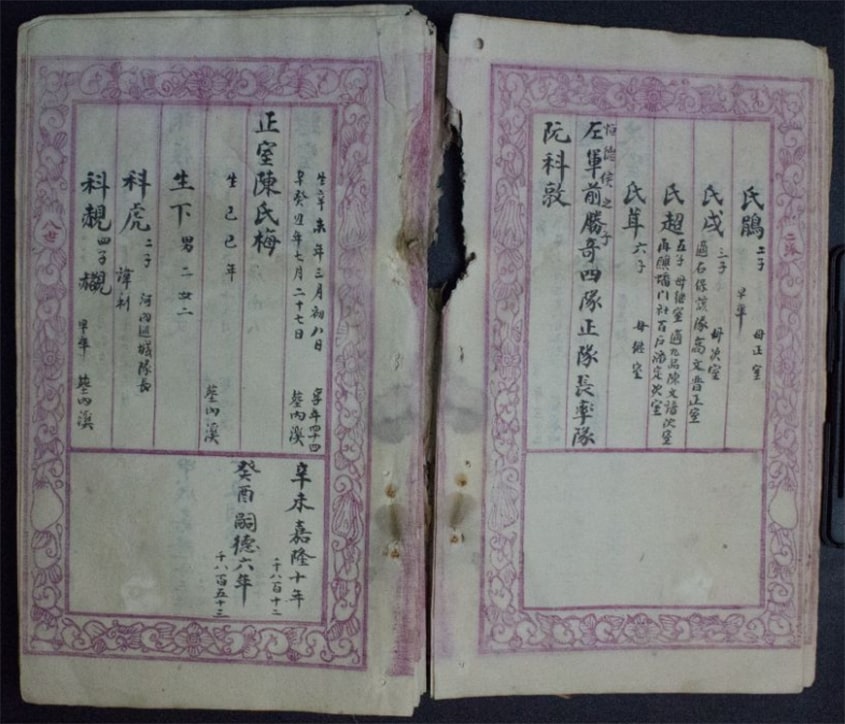 氏鵑 二子 早卒 母正室
氏戍 三子 母次室
適右保護隊高文晋正室
氏超 五子 母継室 適九品陳文語次室
社百戶添定次室
氏茸 六子 母継室
恒德侯之子
左軍前勝奇四隊正隊長率隊
阮科敦
生辛未年三月初八日 享年四十四
卒癸丑年七月二十七日 葬內溪
正室陳氏梅
生己巳年 葬內溪
生下男二女二
科虎 二子 諱利 河內巡城隊長
科 四子 早卒 葬內溪
辛未嘉隆十年
千八百十二
癸酉嗣德六年
千八百五十三
八世